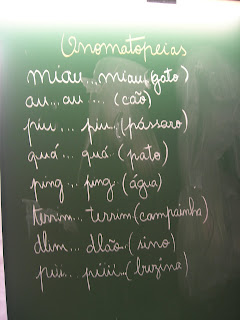 Onomatopeias
miau...miau(gato)
au...au....(cão)
piu...piu...(pássaro)
quá...quá.(pato)
ping...ping.(água)
terrim...terrim(campainha)
dlim...dlão..(sino)
piii...piiii...(buzina)